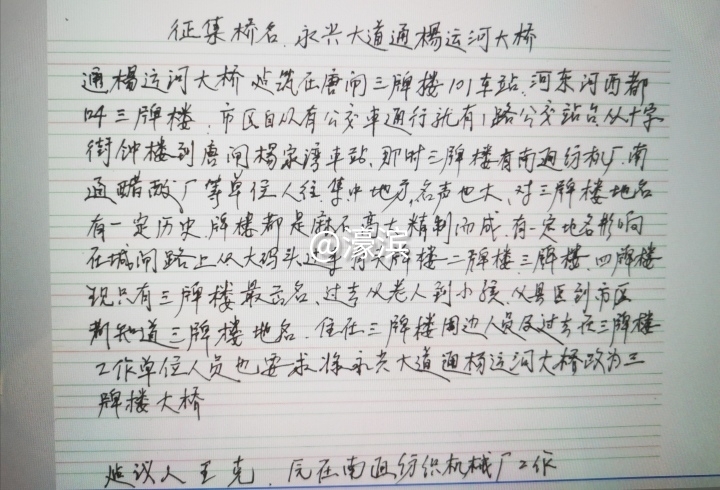 征集桥名、永兴大道通杨运河大桥
通杨运河大桥 建筑在唐闸三牌楼101车站、河东河西都
叫三牌楼、市区自从有公交车通行就有1路公交站台从十字
街钟楼到唐闸杨家湾车站、那时三牌楼有南通纺机厂、南
通醋酸厂等单位人往集中地方、名声也大、对三牌楼地名
有一定历史、牌楼都是麻石高大精制而成、有一定地名影响
在城闸路上从大码头过来有头牌楼二牌楼三牌楼、四牌楼
现只有三牌楼最出名、过去从老人到小孩、从县区到市区
都知道三牌楼地名、住在三牌楼周边人员及过去在三牌楼
工作单位人员也要求将永兴大道通杨运河大桥改为三
牌楼大桥
建议人 王克、原在南通纺织机械厂工作
@濠滨